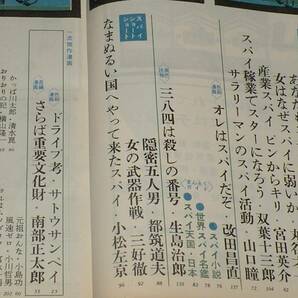 女はなぜスパイに
宮田英介
産業スパイ ピンからキリ
スパイ稼業でスターになろう 双葉十三郎
サラリーマンのスパイ活動 山口瞳
オレはスパイだぞ 改田昌直
スパイ小説
世界スパイ名鑑
スパイ天国・日本
三八四は殺しの番号 生島治郎
隠密五人男 都筑道夫
女の武器作戦 三好徹
なまぬるい国へやって来たスパイ 小松左京
スパイショートショート
ドライブ考 サトウサンペイ
さらば重要文化財 南部正太郎
元祖おんな 小島功
風速ゼロ 小川哲男
かっぱ川太郎 清水崑
おりおりの記 横山隆一